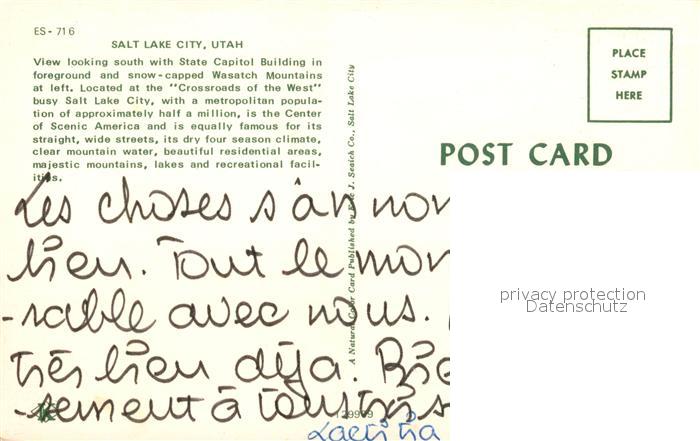 ES-716
SALT LAKE CITY, UTAH
View looking south with State Capitol Building in
foreground and snow-capped Wasatch Mountains
at left. Located at the "Crossroads of the West"
busy Salt Lake City, with a metropolitan popula-
tion of approximately half a million, is the Center
of Scenic America and is equally famous for its
straight, wide streets, its dry four season climate,
clear mountain water, beautiful residential areas,
majestic mountains, lakes and recreational facil-
ities.
A Natural Color Card Published by Eric J. Seaich Co., Salt Lake City
PLACE
STAMP
HERE
POST CARD
privacy protection
Datenschutz
Les choses s'an non
bien. Tout le mon
-sable avec nous.
très bien déja. Bie
-sement à tous tris
Laetitia